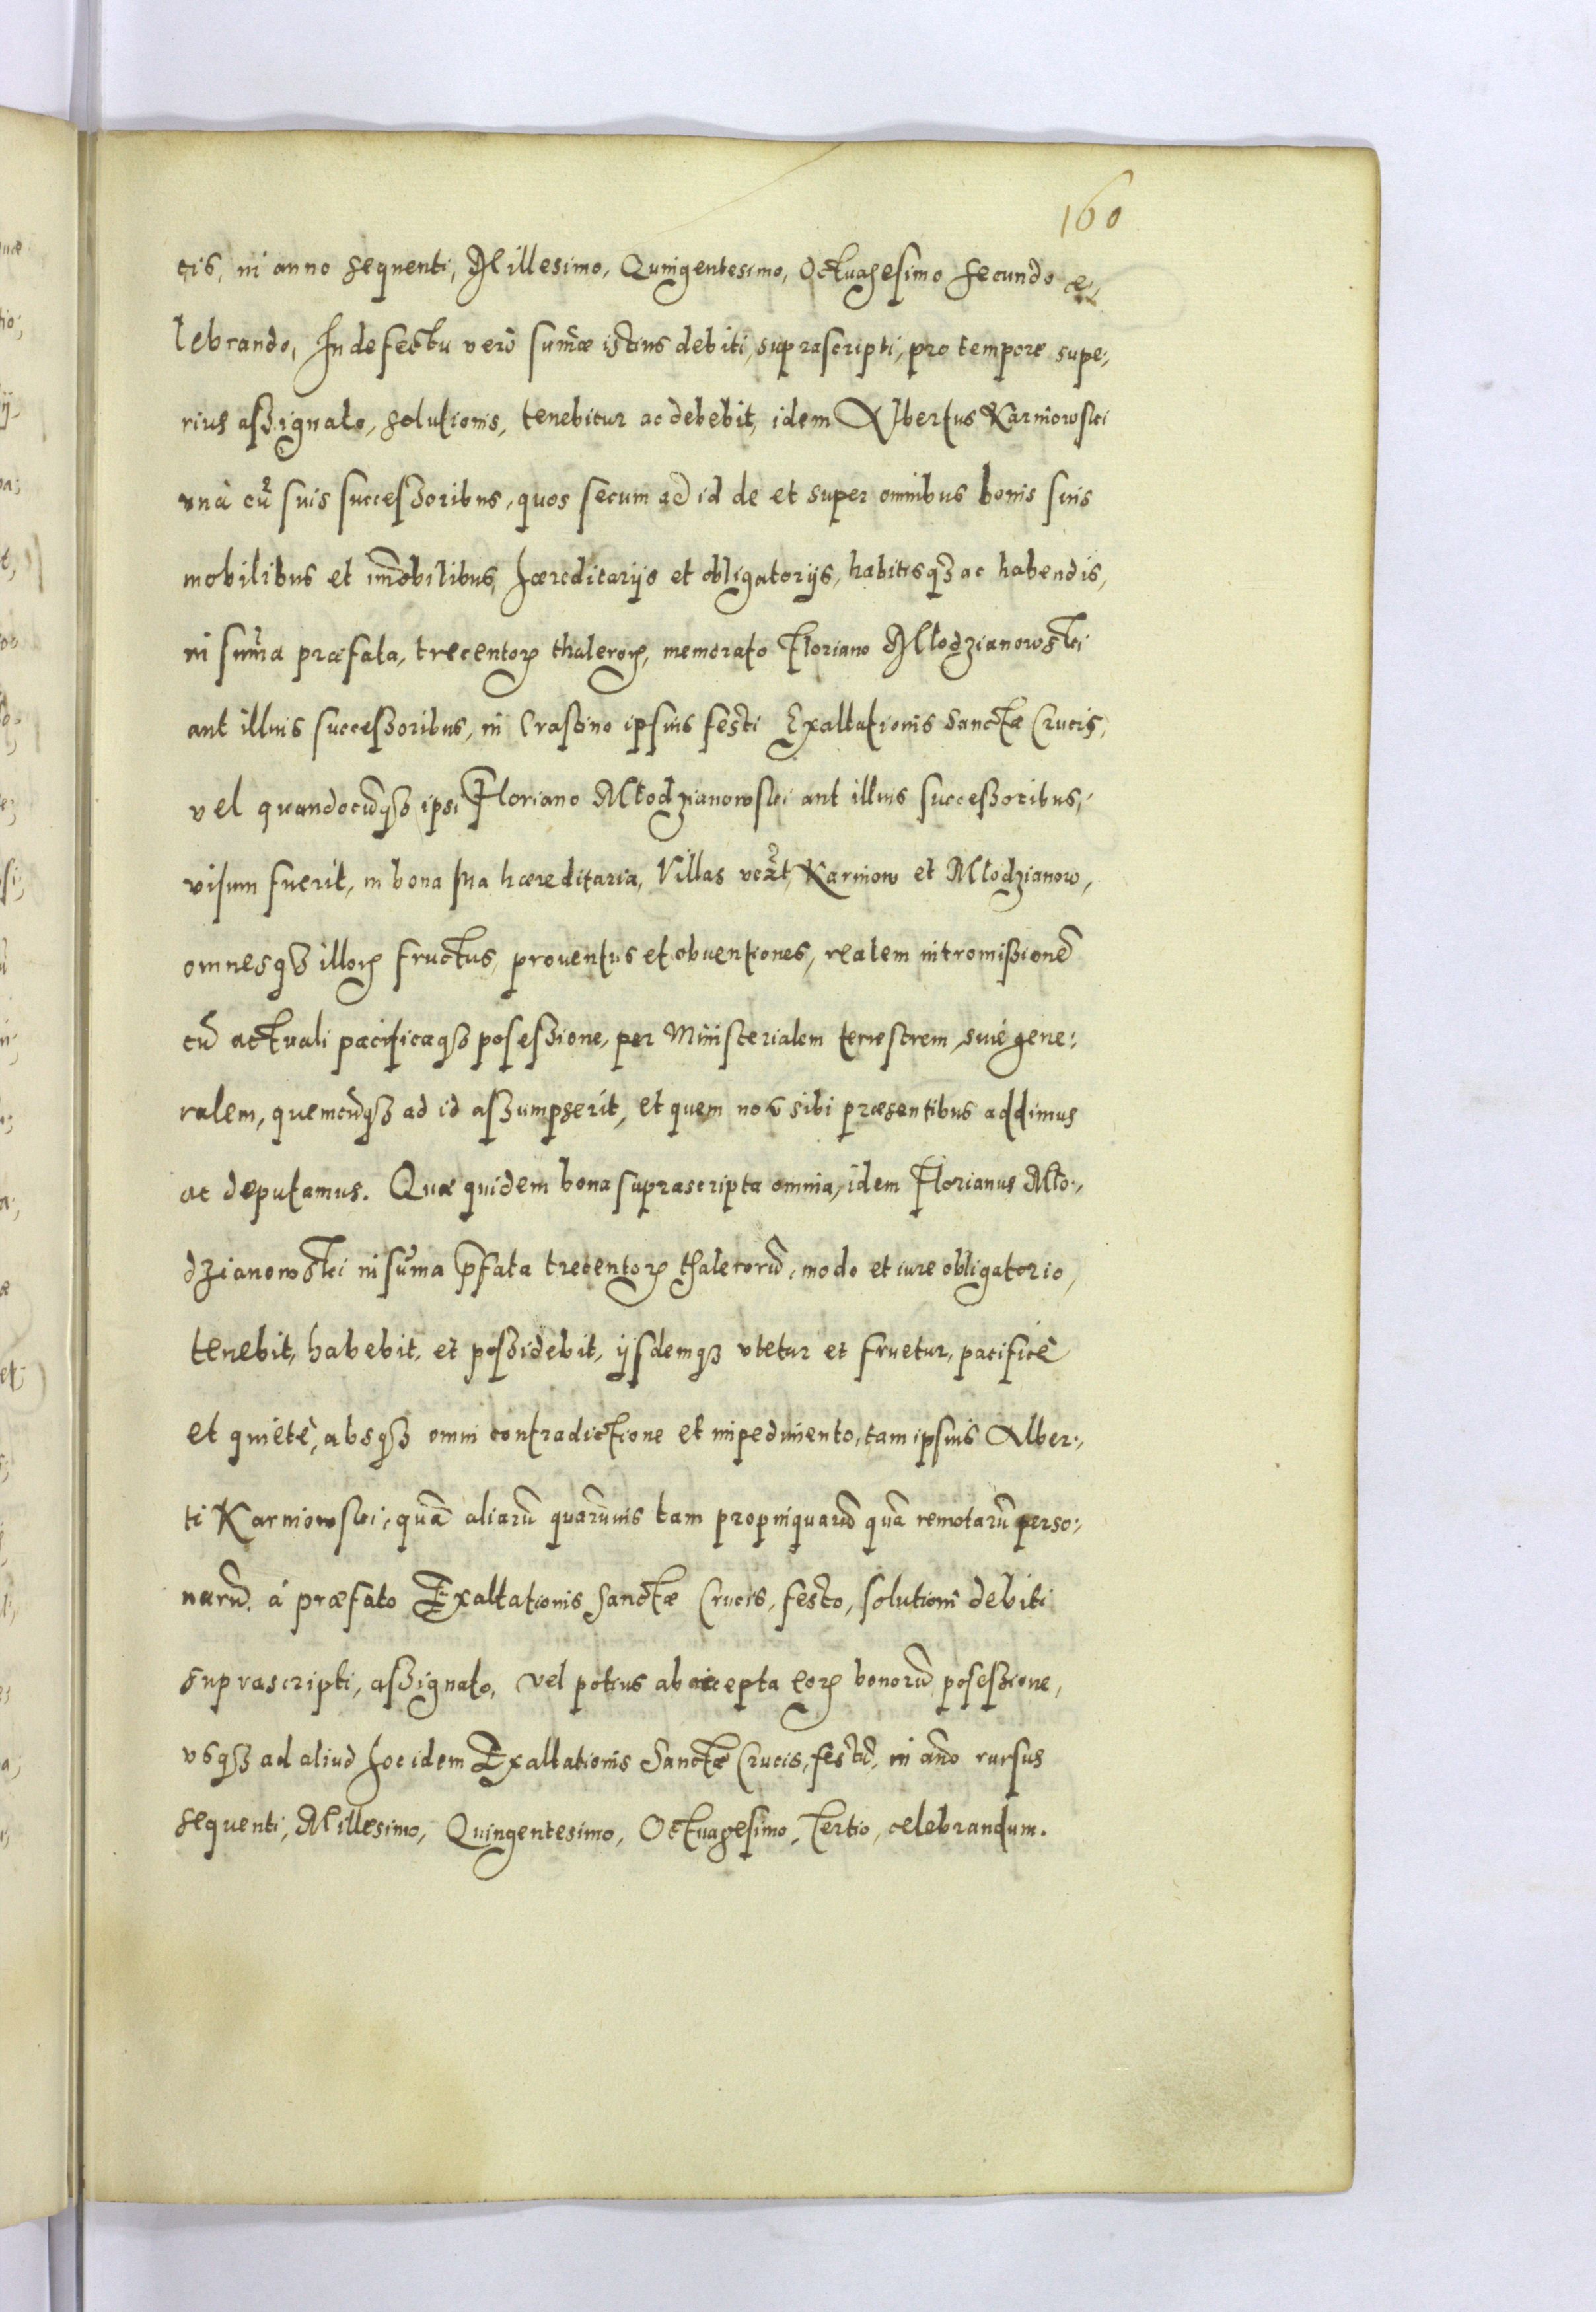 160
cis, in anno sequenti, Millesimo, Quingentesimo, Octuagesimo secundo ce:
lebrando, In defectu verò sum̃æ istius debiti, suprascripti, pro tempore supe:,
rius assignato, solutionis, tenebitur ac debebit, idem Albertus Karniowski
unà cũ suis successoribus, quos secum ad id de et super omnibus bonis suis
mobilibus et im̃obilibus, hæreditariis et obligatorijs, habitisqȝ ac habendis,
in sum̃a præfata, trecentorꝝ thalerorꝝ, memorato Floriano Młodzianowski
aut illius successoribus, in Crastino ipsius festi Exaltationis Sanctæ Crucis,
vel quandocũqȝ ipsi Floriano Młodzianowski aut illius successoribus,
visum fuerit, in bona sua hæreditaria, Villas vcz̃t, Karniow et Młodzianow,
omnesqȝ illorꝝ fructus, prouentus et obuentiones, realem intromissionẽ
cũ actuali pacificaqȝ posessione, per Ministerialem terrestrem siue gene:,
ralem, quemcũqȝ ad id assumpserit, et quem nos sibi præsentibus addimus
ac deputamus. Quæ quidem bona suprascripta omnia, idem Florianus Mło:,
dzianowski in sum̃a p̃fata trecentorꝝ thalerorũ, modo et iure obligatorio,
tenebit, habebit, et possidebit, ijsdemqȝ vtetur et fruetur, pacificè
et quietè, absqȝ omni contradictione et impedimento, tam ipsius Alber:,
ti Karniowski, quã aliarũ quarũuis tam propinquarũ quã remotarũ perso:,
narũ, á præfato Exaltationis Sanctæ Crucis, festo, solutioni debiti
suprascripti, assignato, vel potius ab accepta eorꝝ bonorũ posessione,
vsqȝ ad aliud hoc idem Exaltationis Sanctæ Crucis, festũ, in año rursus
sequenti, Millesimo, Quingentesimo, Octuagesimo, Tertio, celebrandum.